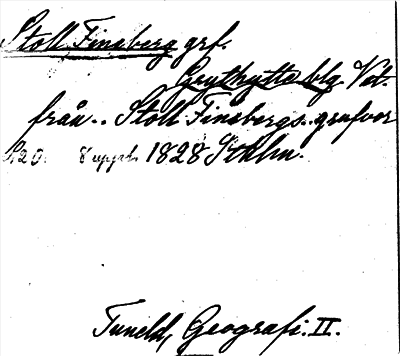 Stoll Finsberg grf.
Grythytte blg. Vst.
från.. Stoll Finsbergs.. grufvor
S. 20. 8 uppl. 1828 Sthlm.
Tuneld, Geografi. II.